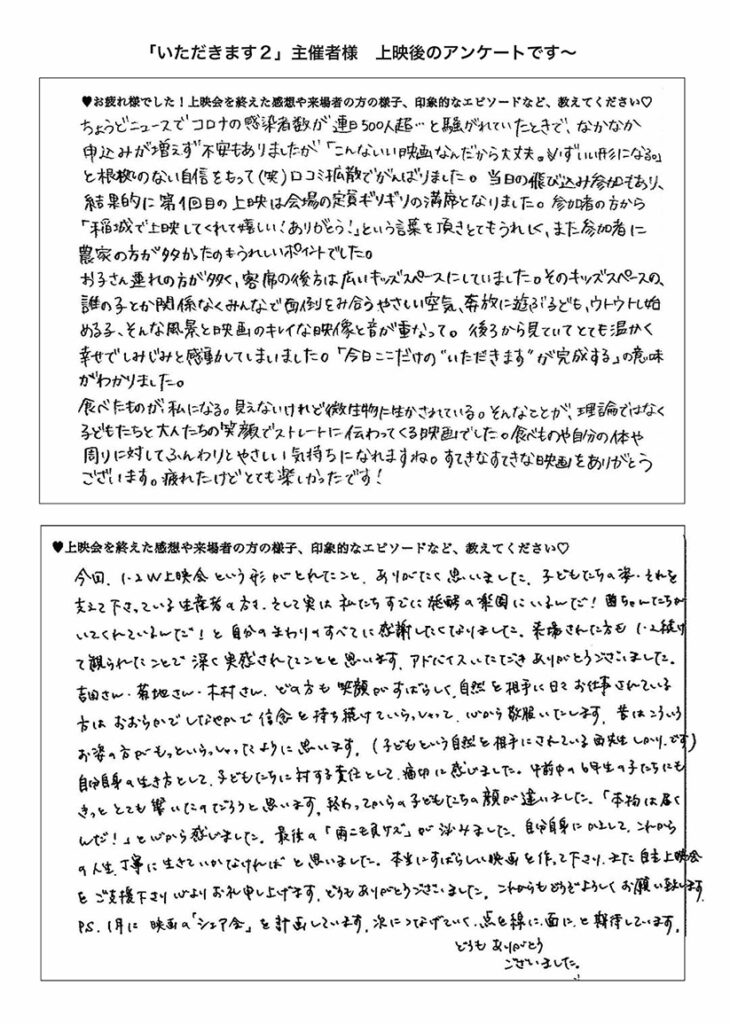 「いただきます２」主催者様　上映後のアンケートです〜
♥お疲れ様でした！上映会を終えた感想や来場者の方の様子、印象的なエピソードなど、教えてください♡
ちょうどニュースでコロナの感染者数が連日500人超…と騒がれていたときで、なかなか
申込みが増えず不安もありましたが「こんないい映画なんだから大丈夫。必ずいい形になる。」
と根拠のない自信をもって(笑)口コミ拡散でがんばりました。当日の飛び込み参加もあり、
結果的に第1回目の上映は会場の定員ギリギリの満席となりました。参加者の方から
「稲城で上映してくれて嬉しい！ありがとう！」という言葉を頂きとてもうれしく、また参加者に
農家の方が多かったのもうれしいポイントでした。
お子さん連れの方が多く、客席の後方は広いキッズスペースにしていました。そのキッズスペースの、
誰の子とか関係なくみんなで面倒をみ合うやさしい空気、奔放に遊ぶ子ども、ウトウトし始
める子、そんな風景と映画のキレイな映像と音が重なって。後ろから見ていてとても温かく
幸せでしみじみと感動してしまいました。「今日ここだけの"いただきます"が完成する」の意味
がわかりました。
食べたものが、私になる。見えないけれど微生物に生かされている。そんなことが、理論ではなく
子どもたちと大人たちの笑顔でストレートに伝わってくる映画でした。食べものや自分の体や
周りに対してふんわりとやさしい気持ちになれますね。すてきなすてきな映画をありがとう
ございます。疲れたけどとても楽しかったです！
♥上映会を終えた感想や来場者の方の様子、印象的なエピソードなど、教えてください♡
今回、1・2W上映会という形がとれたこと、ありがたく思いました。子どもたちの姿・それを
支えて下さっている生産者の方々、そして実は私たちすでに発酵の楽園にいるんだ！菌ちゃんたちが
いてくれているんだ！と自分のまわりのすべてに感謝したくなりました。来場された方も1・2続け
て観られたことで深く実感されたことと思います。アドバイスいただきありがとうございました。
吉田さん・菊地さん・木村さん、どの方も笑顔がすばらしく、自然を相手に日々お仕事されている
方はおおらかでしなやかで信念を持ち続けていらっしゃって、心から敬服いたします。昔はこういう
お姿の方がもっといらっしゃったように思います。(子どもという自然を相手にされている西先生しかり、です)
自分自身の生き方として、子どもたちに対する責任として、痛切に感じました。午前中の6年生の子たちにも
きっととても響いたのだろうと思います。終わってからの子どもたちの顔が違いました。「本物は届く
んだ！」と心から感じました。最後の「雨ニモ負ケズ」が沁みました。自分自身にひとして、これから
の人生、丁寧に生きていかなければと思いました。本当にすばらしい映画を作って下さり、また自主上映会
をご支援下さり心よりお礼申し上げます。どうもありがとうございました。これからもどうぞよろしくお願い致します。
P.S. 1月に映画の「シェア会」を計画しています。次につなげていく、点を線に、面に、と期待しています。
どうもありがとう
ございました。